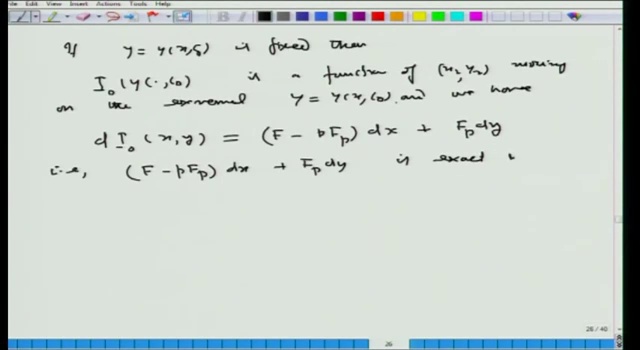 File View Insert Actions Tools Help
If y = y(x, c0) is fixed then
I0(y(·, c0) is a function of (x2, y2) moving
on the extremal y = y(x, c0) and we have
d I0 (x, y) = (F - pFp) dx + Fp dy
i.e, (F - pFp) dx + Fp dy is exact
26 / 40
26